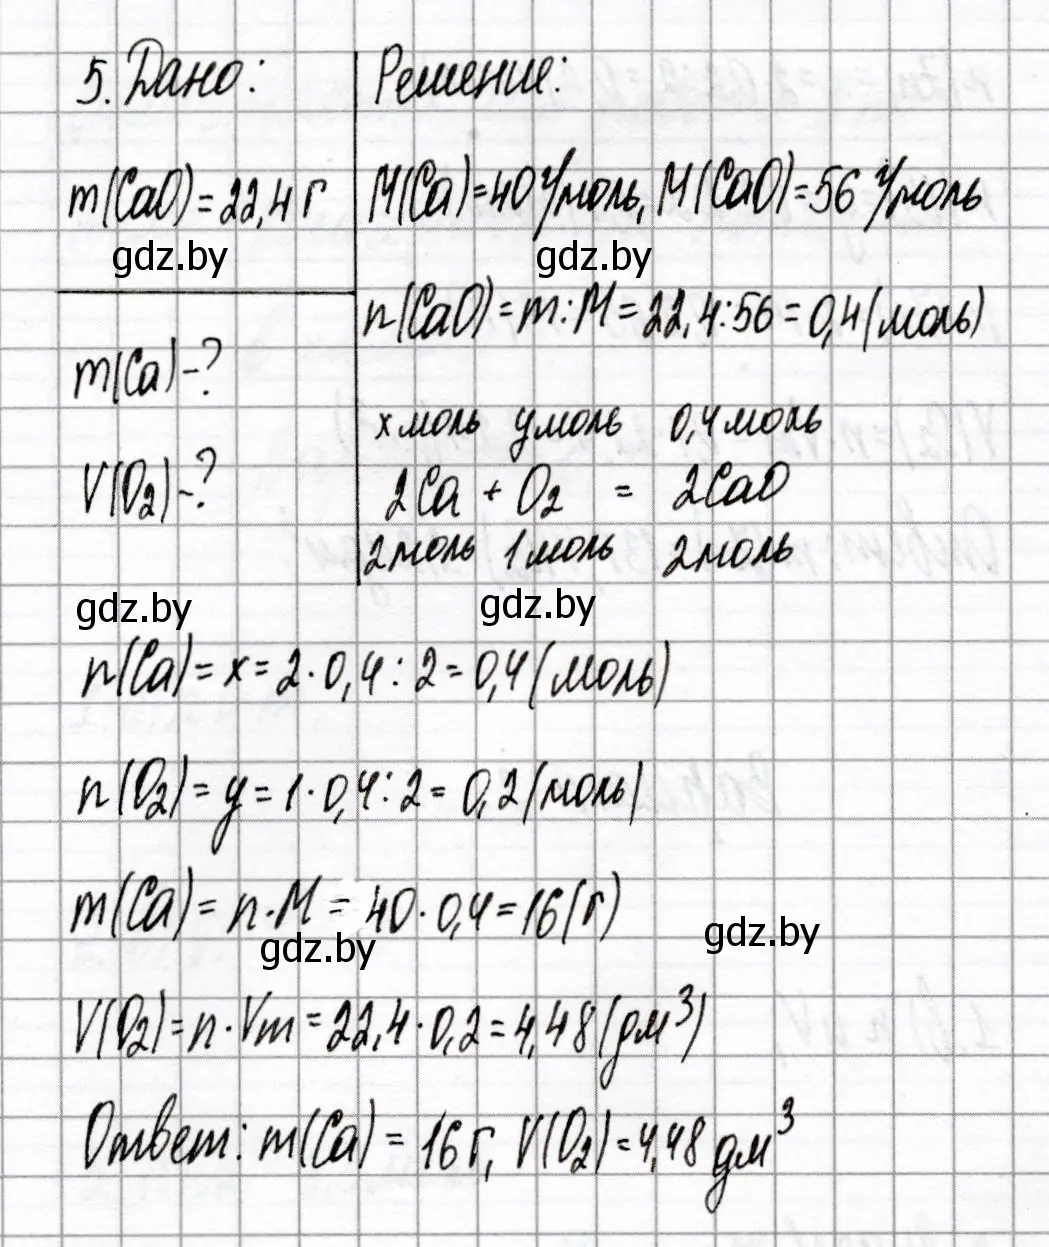 5. Дано:
Решение:
m(CaO) = 22,4 г
M(Ca)=40 г/моль, M(CaO)=56 г/моль
gdz.by
gdz.by
n(CaO) = m:M = 22,4:56 = 0,4 (моль)
m(Ca) -?
x моль y моль 0,4 моль
V(O₂) -?
2Ca + O₂ = 2CaO
2 моль 1 моль 2 моль
gdz.by
gdz.by
n(Ca) = x = 2·0,4:2 = 0,4 (моль)
n(O₂) = y = 1·0,4:2 = 0,2 (моль)
m(Ca) = n·M = 40·0,4 = 16 (г)
gdz.by
gdz.by
V(O₂) = n·Vm = 22,4·0,2 = 4,48 (дм³)
Ответ: m(Ca) = 16 г, V(O₂) = 4,48 дм³